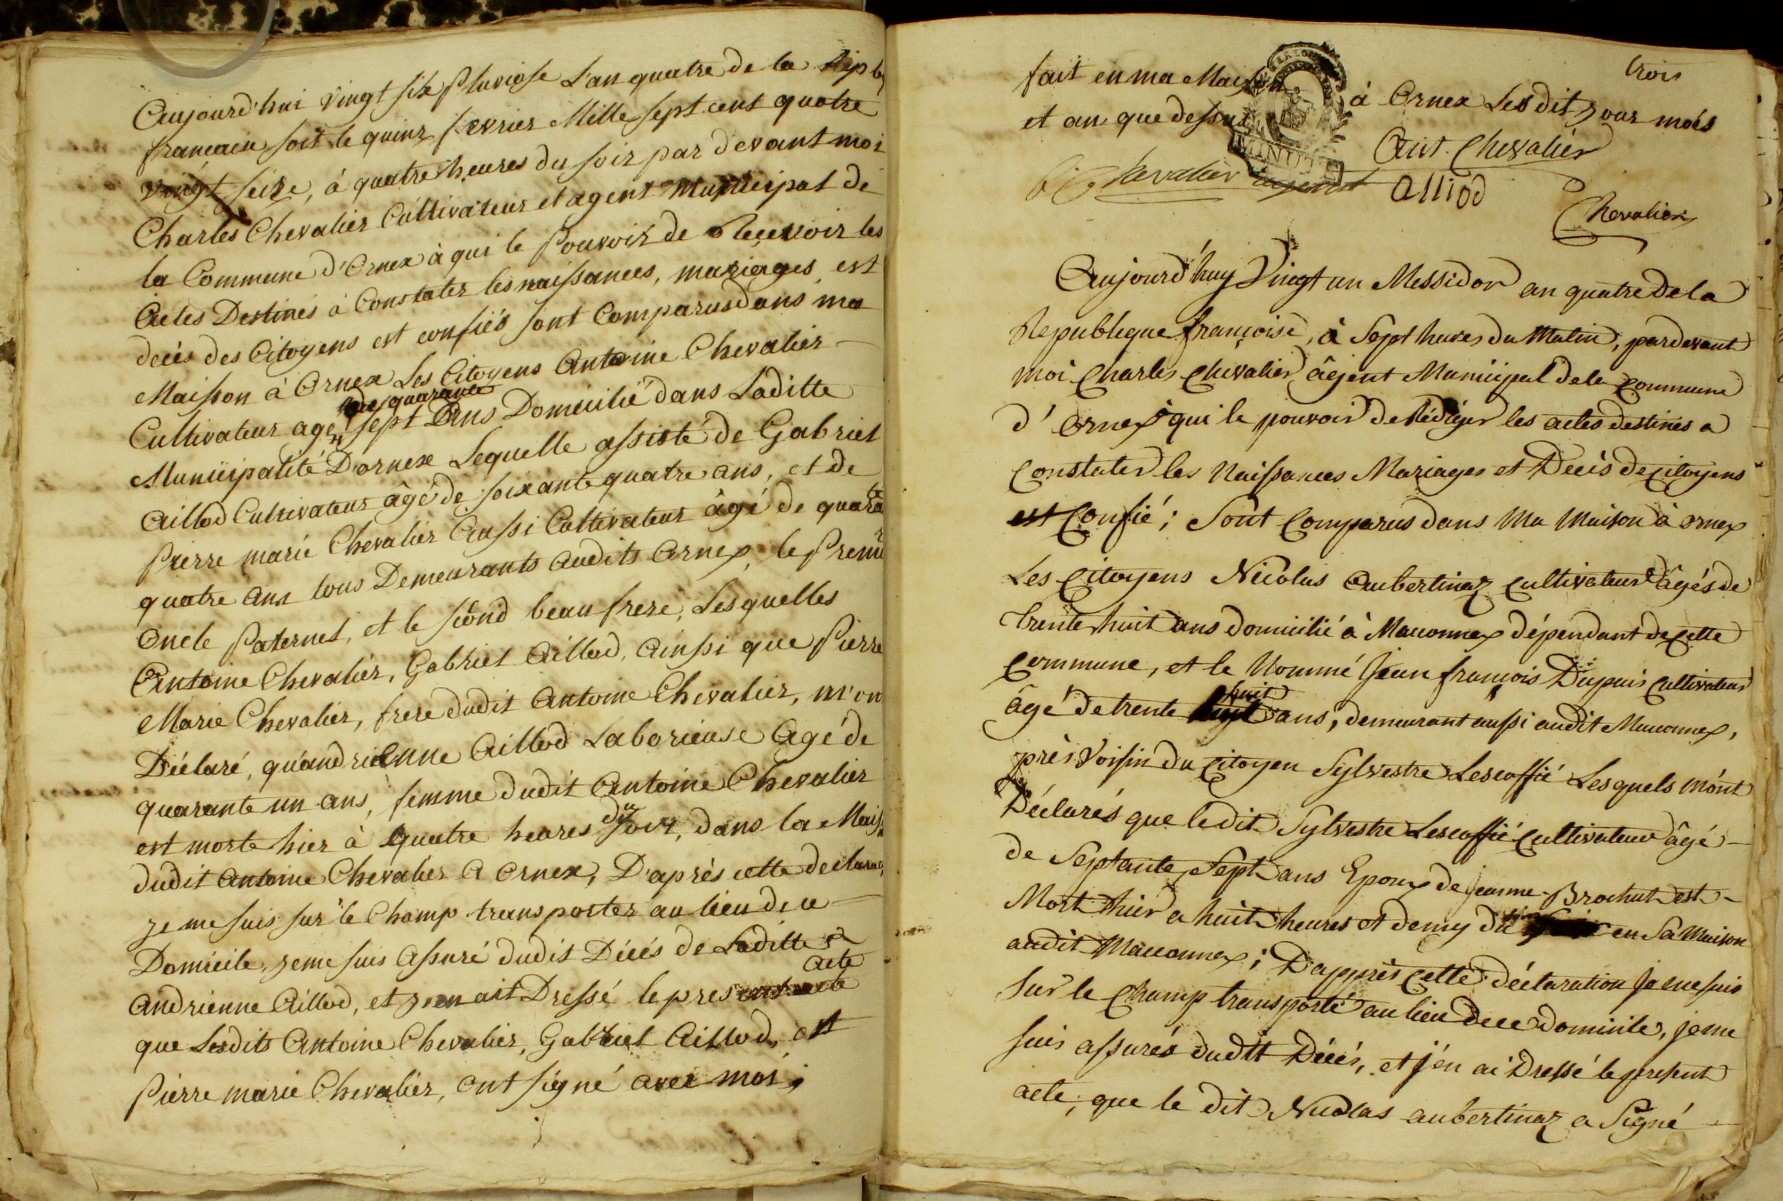 Aujourd'hui vingt six Pluviose L'an quatre de la Rep
francaise soit le quinz fevrier Mille sept cent quatre
vingt seize, à quatre heures du soir par devant moi
Charles Chevalier Cultivateur et agent Municipal de
la Commune d'Ornex à qui le Pouvoir de Recevoir les
Actes Destinés à Constater les naissances, mariages, est
decès des Citoyens est confiés sont Comparus dans ma
Maison à Ornex Les Citoyens Antoine Chevalier
de quarante
Cultivateur age sept Ans Domicilié dans Laditte
Municipalité D'ornex Lequelle assisté de Gabriel
Aillod Cultivateur âgé de soixante quatre ans, et de
Pierre marie Chevalier Aussi Cultivateur âgé de quara
quatre ans tous Demeurants audits Ornex, le Premi
Oncle Paternel, et le second beau frere, Lesquelles
Antoine Chevalier, Gabriel Aillod, Ainssi que Pierre
Marie Chevalier, frere dudit Antoine Chevalier, m'on
Déclaré, qu'andrienne Aillod Laborieuse Agé de
quarante un ans, femme dudit Antoine Chevalier
est morte hier à quatre heures du soir, dans la Mais
dudit Antoine Chevalier a Ornex, D'après cette declara
je me suis sur le Champ transporter au lieu de ce
Domicile, je me suis assuré dudit Décés de Laditte
Andrienne Aillod, et j'en ait Dressé le present acte
que Lesdits Antoine Chevalier, Gabriel Aillod, est
Pierre marie Chevalier, ont signé avec moi,
trois
fait en ma Maison à Ornex Lesdit jour mois
et an que dessus
MINUTE
Ant. Chevalier
Chevalier agent Alliod
Chevalier
Aujourd'huy Vingt un Messidor an quatre de la
Republique françoise, à Sept heures du Matin, pardevant
moi Charles Chevalier âgent Municipal de la Commune
d'Ornex à qui le pouvoir de Rédiger les actes destinés a
Constater les Naissances Mariages et Décès de Citoyens
est Confié; Sont Comparus dans Ma Maison à Ornex
Les Citoyens Nicolas Aubertinaz Cultivateur âgés de
trente huit ans domicilié à Maconnex dépendant de cette
Commune, et le Nommé Jean françois Dupuis Cultivateur
âgé de trente huit ans, demeurant aussi audit Maconnex,
près Voisin du Citoyen Sylvestre Lescoffié Lesquels m'ont
Déclarés que ledit Sylvestre Lescoffié Cultivateur âgé
de Septante Sept ans Epoux de jeanne Brochut est
Mort hier a huit heures et demy du en Sa Maison
audit Maconnex; D'apprès cette déclaration je me suis
Sur le Champ transporté au lieu de ce domicile, je me
suis assurés dudit Décés, et j'en ai Dressé le present
acte, que le dit Nicolas aubertinaz a Signé